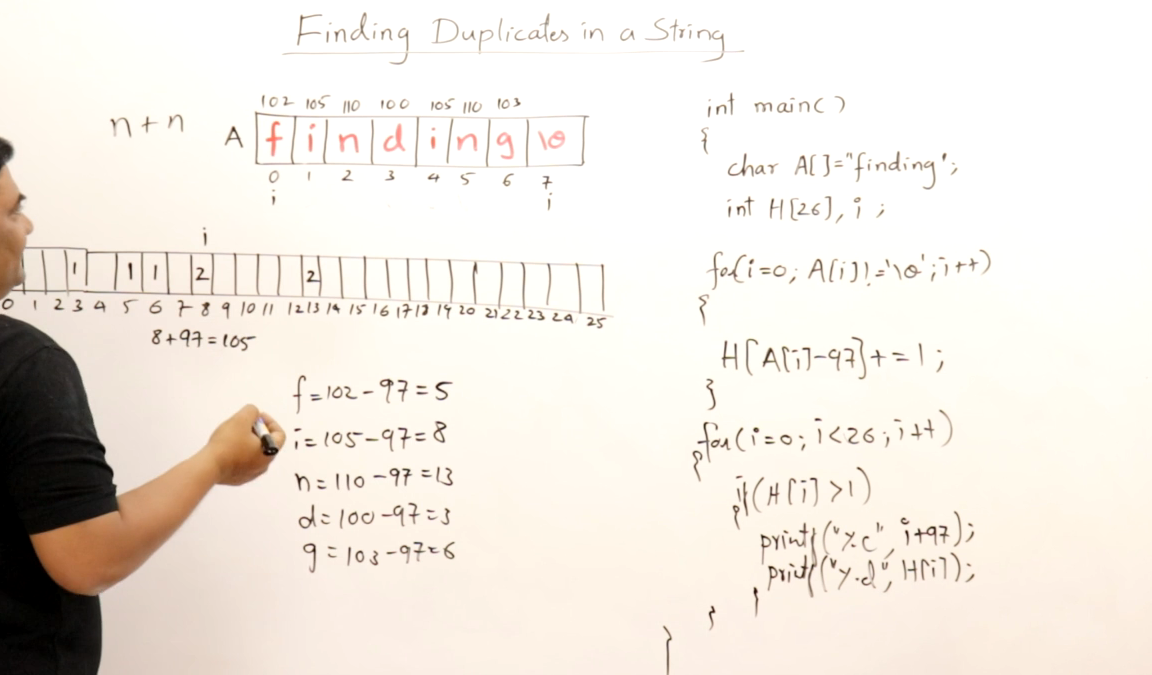 Finding Duplicates in a String
n+n
102 105 110 100 105 110 103
A f i n d i n g \0
0 1 2 3 4 5 6 7
i i
i
1 1 1 2 2
0 1 2 3 4 5 6 7 8 9 10 11 12 13 14 15 16 17 18 19 20 21 22 23 24 25
8+97=105
f=102-97=5
i=105-97=8
n=110-97=13
d=100-97=3
g=103-97=6
int main()
{
char A[]="finding";
int H[26], i ;
for(i=0; A[i]!='\0'; i++)
{
H[A[i]-97]+=1;
}
for(i=0; i<26; i++)
{
if(H[i]>1)
{
printf("%c", i+97);
printf("%d", H[i]);
}
}
}